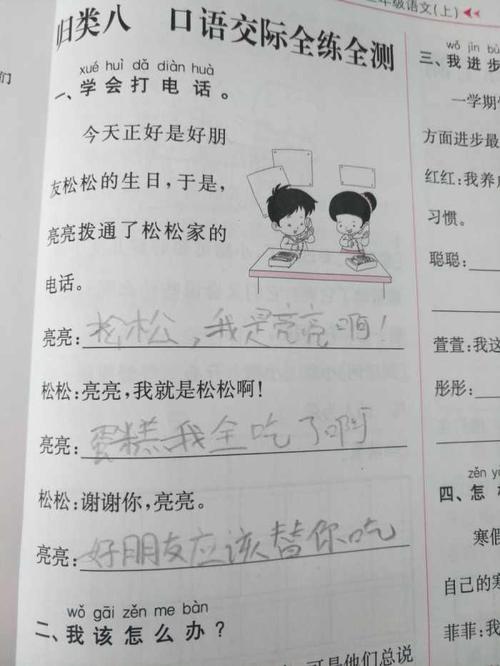 级语文(上)
归类八 口语交际全练全测
们
xué huì dǎ diàn huà
一、学会打电话。
今天正好是好朋
友松松的生日,于是,
亮亮拨通了松松家的
电话。
亮亮:松松,我是亮亮啊!
松松:亮亮,我就是松松啊!
亮亮:蛋糕我全吃了啊
松松:谢谢你,亮亮。
亮亮:好朋友应该替你吃
wǒ gāi zěn me bàn
二、我该怎么办?
可是他们总说
wǒ jìn bù
三、我进步
一学期
方面进步最
红红:我养
习惯。
聪聪:
萱萱:我这
彤彤:
zěn
四、怎
寒假
自己的寒
菲菲: